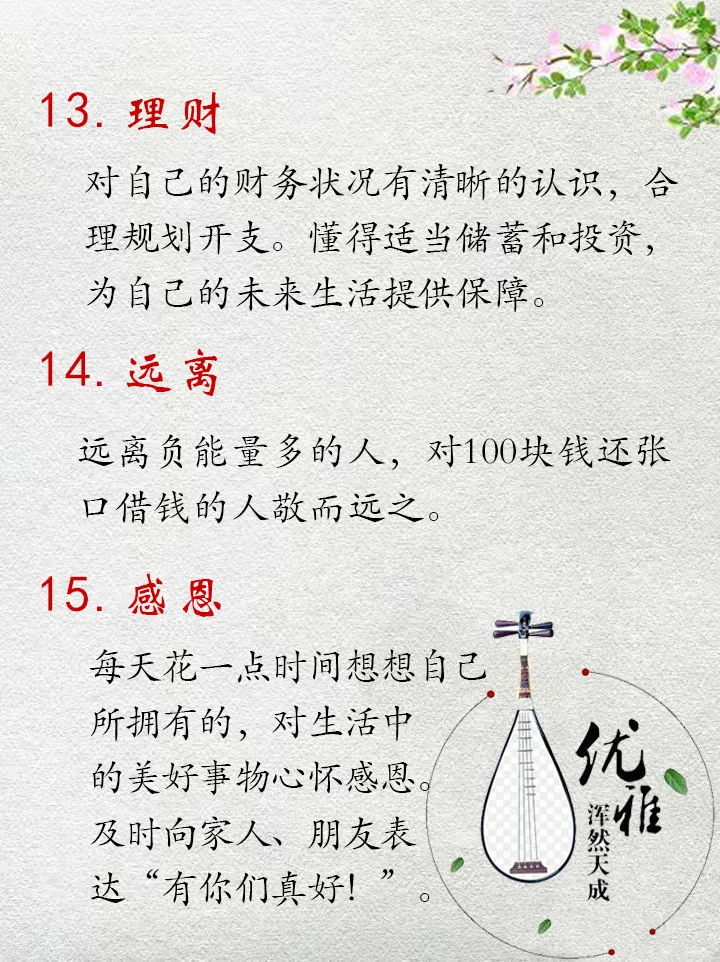 13. 理财
对自己的财务状况有清晰的认识，合
理规划开支。懂得适当储蓄和投资，
为自己的未来生活提供保障。
14. 远离
远离负能量多的人，对100块钱还张
口借钱的人敬而远之。
15. 感恩
每天花一点时间想想自己
所拥有的，对生活中
的美好事物心怀感恩。
及时向家人、朋友表
达“有你们真好！”。
优雅
浑然天成